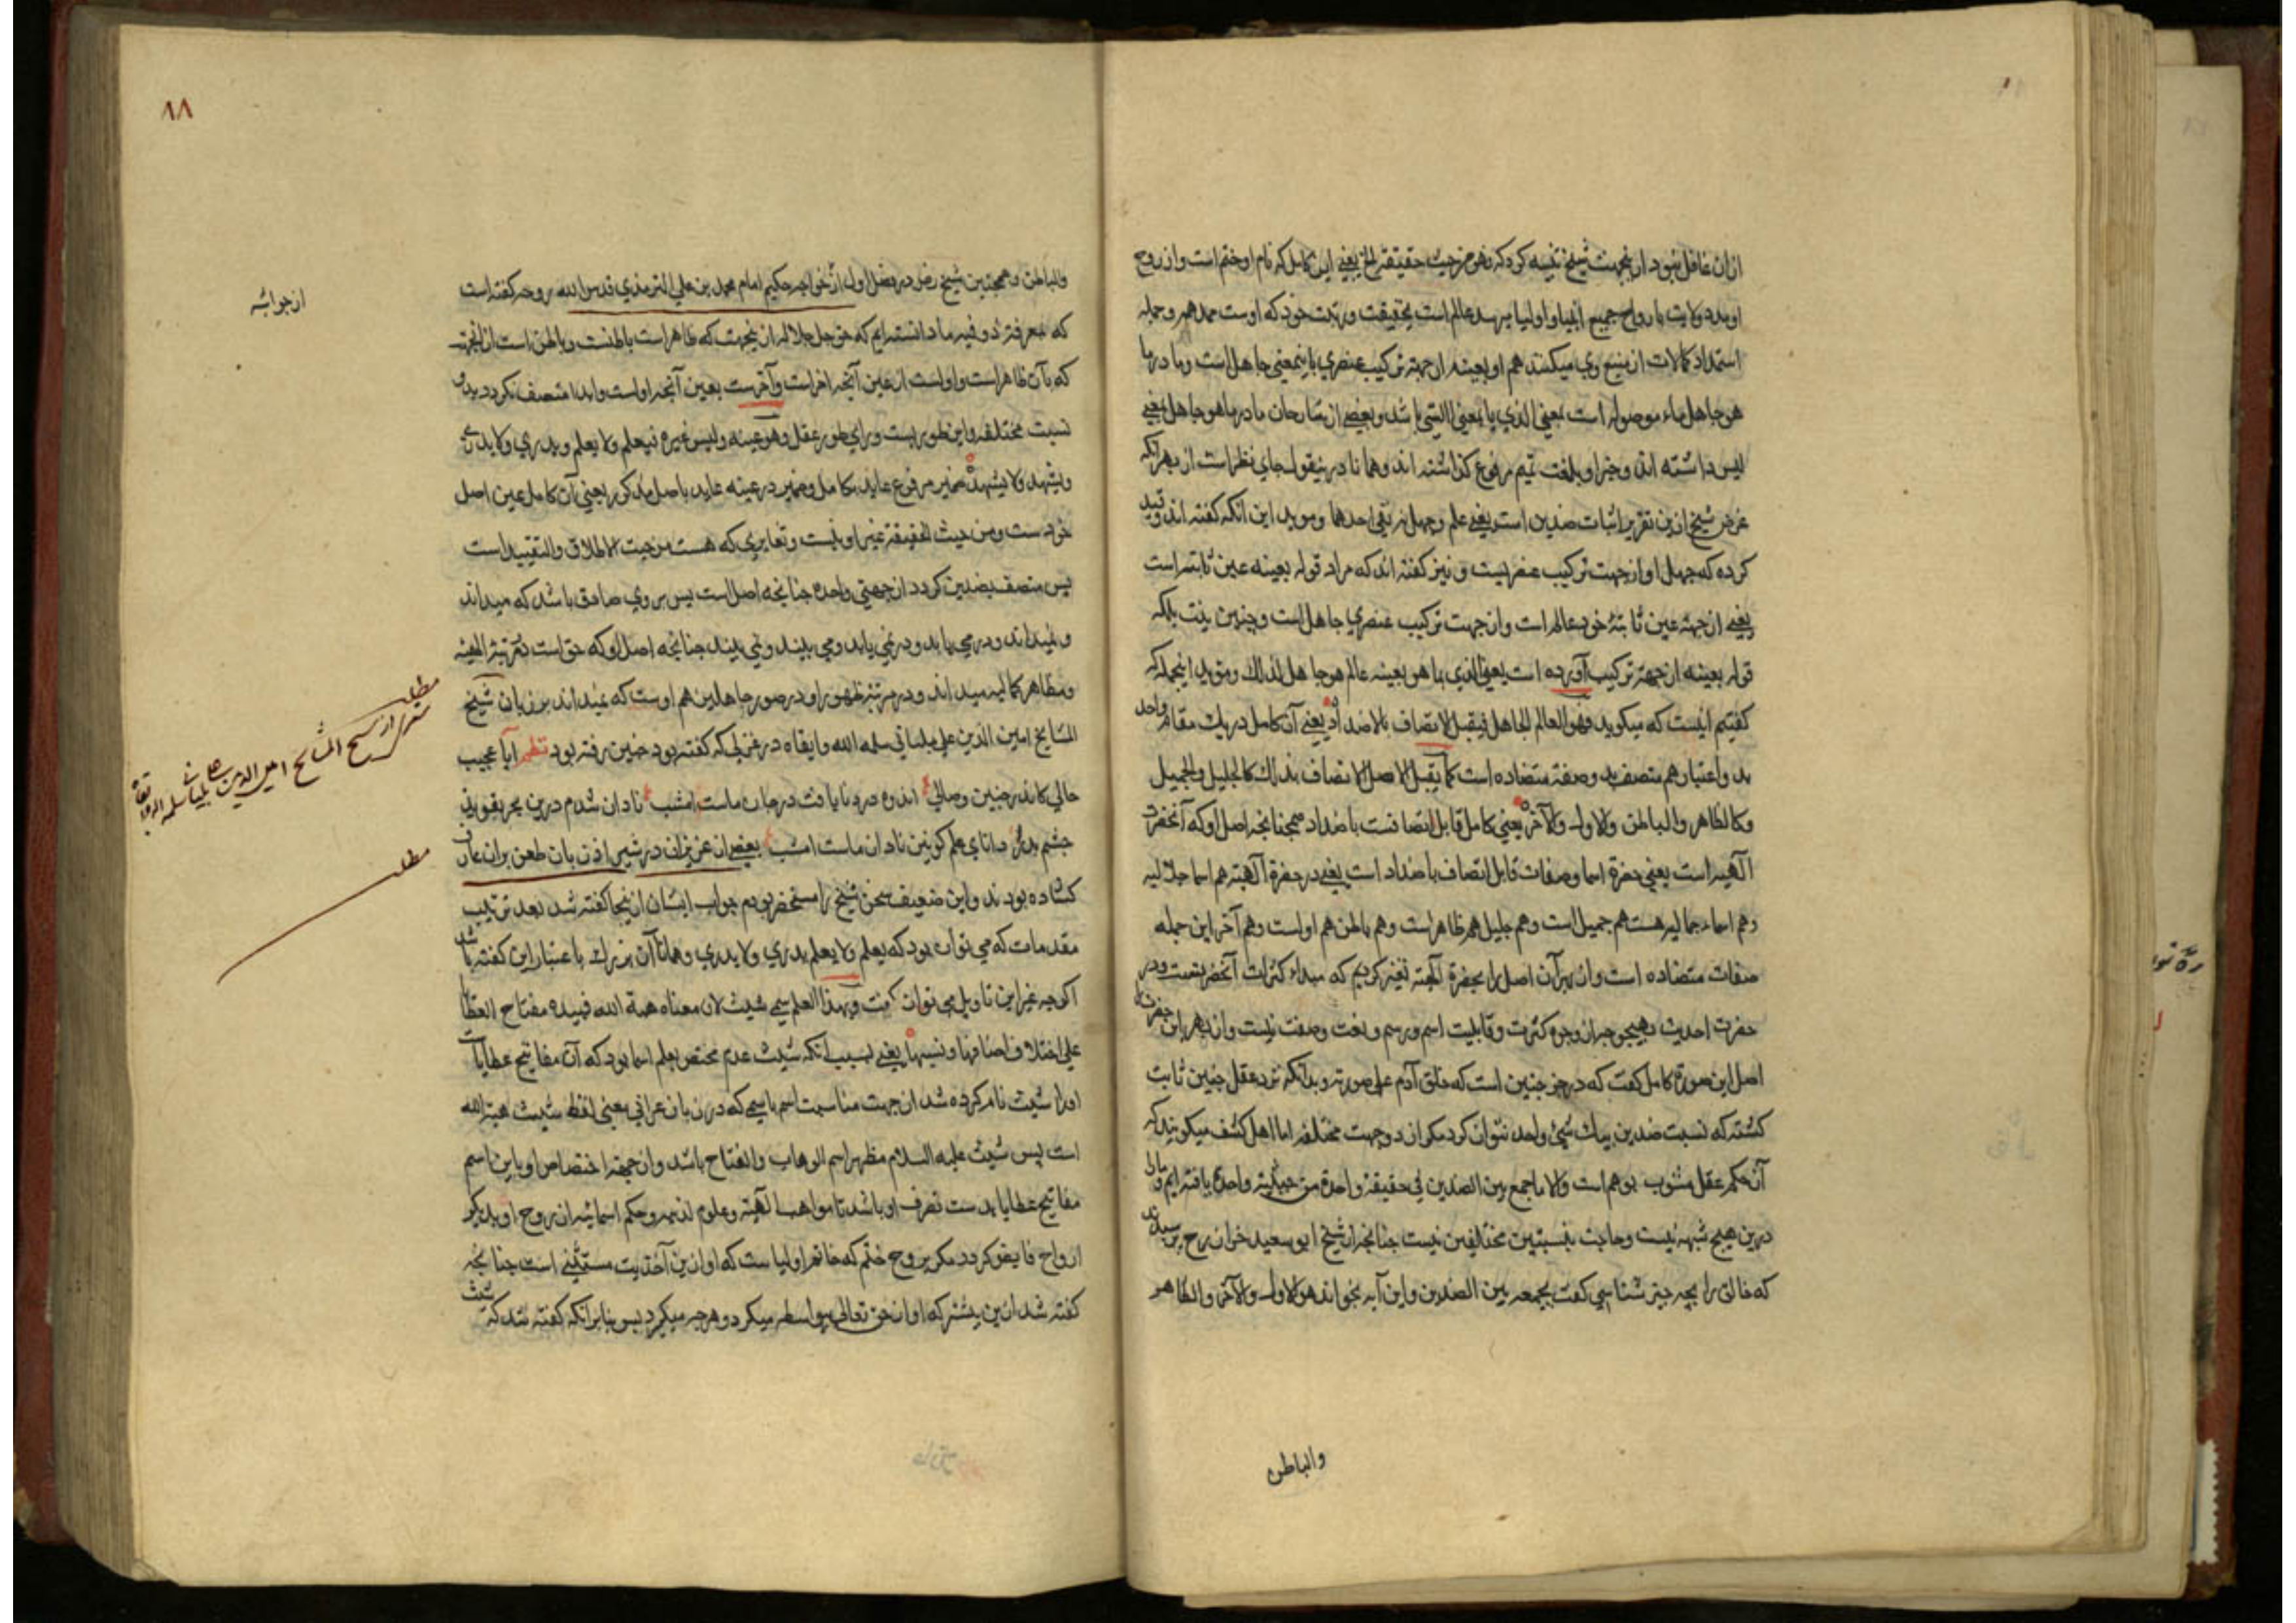 ازان غافل نبود ازینجهت شیخ تنبیه کرد که وهو من حیث حقیقته الخ یعنی این کامل که نام او ختم است وازروح
او مدد ولایت بارواح جمیع انبیا واولیا میرسد عالم است بحقیقت ورتبت خود که اوست ممد همه وجمله
استمداد کمالات از منبع وی میکنند هم او بعینه از جهة ترکیب عنصری باینمعنی جاهل است وما در ما
هو جاهل ماء موصوله است بمعنی الذی یا بمعنی التی باشد وبعضی از شارحان ما در ما هو جاهل بمعنی
لیس داشته اند وخبر او بلغت تمیم مرفوع کذاشته اند وهمانا درینقول جای نظر است از بهر آنکه
غرض شیخ ازین تقریر اثبات ضدین است یعنی علم وجهل نه نفی احدهما وموید این انکه کفته اند وقید
کرده که جهل او از جهت ترکیب عنصریست ونیز کفته اند که مراد قوله بعینه عین ثابته است
یعنی از جهة عین ثابتهٔ خود عالم است وازجهت ترکیب عنصری جاهل است وچنین نیست بلکه
قوله بعینه از جهة ترکیب آورده است یعنی الذی ما هو بعینه عالم هو جاهل لذلک وموید اینجمله که
کفتیم اینست که میکوید فهو العالم الجاهل فیقبل الاتصاف بالاضداد یعنی آن کامل در یک مقام واحد
بدو اعتبار هم متصف بدو صفة متضاده است کما یقبل الاصل الاتصاف بذلک کالجلیل والجمیل
وکالظاهر والباطن والاول والآخر یعنی کامل قابل اتصافست باضداد همچنانچه اصل او که آنحضرت
آلهیه است یعنی حضرة اسما وصفات قابل اتصاف باضداد است یعنی در حضرة آلهیة هم اسما جلالیه
وهم اسماء جمالیه هست هم جمیل است وهم جلیل هم ظاهر است وهم باطن هم اولست وهم آخر این جمله
صفات متضاده است وازبهر آن اصل را بحضرة آلهیة تفسیر کردیم که مبداء کثرات آنحضرتست ودر
حضرت احدیت بهیچ وجه از وجوه کثرت وقابلیت اسم ورسم ونعت وصفت نیست وازبهر این حضرت
اصل این صورة کامل کفت که در خبر چنین است که خلق آدم علی صورته وبدانکه نزد عقل چنین ثابت
کشته که نسبت ضدین بیک شیء واحد نتوان کرد مکر از دو جهت مختلفه اما اهل کشف میکویند که
آن حکم عقل مشوب بوهم است والا ما جمع بین الضدین فی حقیقة واحدة من حیثیة واحدة یافته ایم ومارا
درین هیچ شبهه نیست وحاجت بنسبتین مختلفین نیست چنانچه از شیخ ابو سعید خراز رح پرسیدند
که خالق را بچه چیز شناسی کفت بجمعه بین الضدین واین آیه بخواند هو الاول والآخر والظاهر
والباطن
٨٨
والباطن وهمچنین شیخ رض در فصل اول از خواجه حکیم امام محمد بن علی الترمذی قدس الله روحه کفته است
از جوابه
که بمعرفة ذوقیه ما دانسته ایم که حق جل جلاله ازینجهت که ظاهر است باطنست وباطن است ازانجهت
که بآن ظاهر است واولست از عین آنچه اخر است وآخرست بعین آنچه اولست وابدا متصف نکردد بدو
نسبت مختلفه واین طوریست ورای طور عقل وهو عینه ولیس غیره فیعلم ولا یعلم ویدری ولا یدری
ویشهد ولا یشهد ضمیر مرفوع عاید بکامل وضمیر در عینه عاید باصل مذکور یعنی آن کامل عین اصل
خودست ومن حیث الحقیقة غیر او نیست وتغایری که هست من حیث الاطلاق والتقیید است
پس متصف بضدین کردد از جهتی واحده چنانچه اصل است پس بر وی صادق باشد که میداند
ونمیداند ودر می یابد ودر نمی یابد ومی بیند ونمی بیند چنانچه اصل او که حق است در مرتبه الهیه
ومظاهر کمالیه میداند ودر مرتبه ظهور او در صور جاهلین هم اوست که نمیداند بر زبان شیخ
المشایخ امین الدین علی بلیانی سلمه الله وابقاه در غزلی که کفته بود چنین رفته بود نظم ایا عجیب
مطلب
شعری از شیخ المشایخ امین الدین علی بلیانی سلمه الله وابقاه
حالی کاندر چنین وصالی اندوه درد نایافت در جان ماست امشب نادان شدم درین بحر بقوید
چشم بد را دانای علم کونین نادان ماست امشب بعضی از عزیزان در شیراز زبان طعن بران عارف
مطلب
کشاده بودند واین ضعیف سخن شیخ را مستحضر بودم جواب ایشان ازینجا کفته شد بعد ترتیب
مقدمات که می توان بود که یعلم ولا یعلم یدری ولا یدری وهمانا آن بزرک باعتبار این کفته باشد
اکرچه غیر این تاویل می توان کفت وبهذا العلم سمی شیث لان معناه هبة الله فبیده مفتاح العطایا
علی اختلاف اصنافها ونسبها یعنی بسبب آنکه شیث عدم مختص بعلم اسما بود که آن مفاتیح عطایاست
اورا شیث نام کرده شد از جهت مناسبت اسم بامسمی که در زبان عبرانی بمعنی لفظ شیث هبة الله
است پس شیث علیه السلام مظهر اسم الوهاب والفتاح باشد واز جهة اختصاص او باین اسم
مفاتیح عطایا بدست تصرف او باشد تا مواهب آلهیة وعلوم لدنیه وحکم اسمائیه از روح او بدیکر
ارواح فایض کردد مکر بروح ختم که خاتم اولیاست که او ازین آخذیت مستثنی است چنانچه
کفته شد ازین پیشتر که او از حق تعالی بیواسطه میکرد وهرچه میکیرد پس بنابر انکه کفته شد که شیث